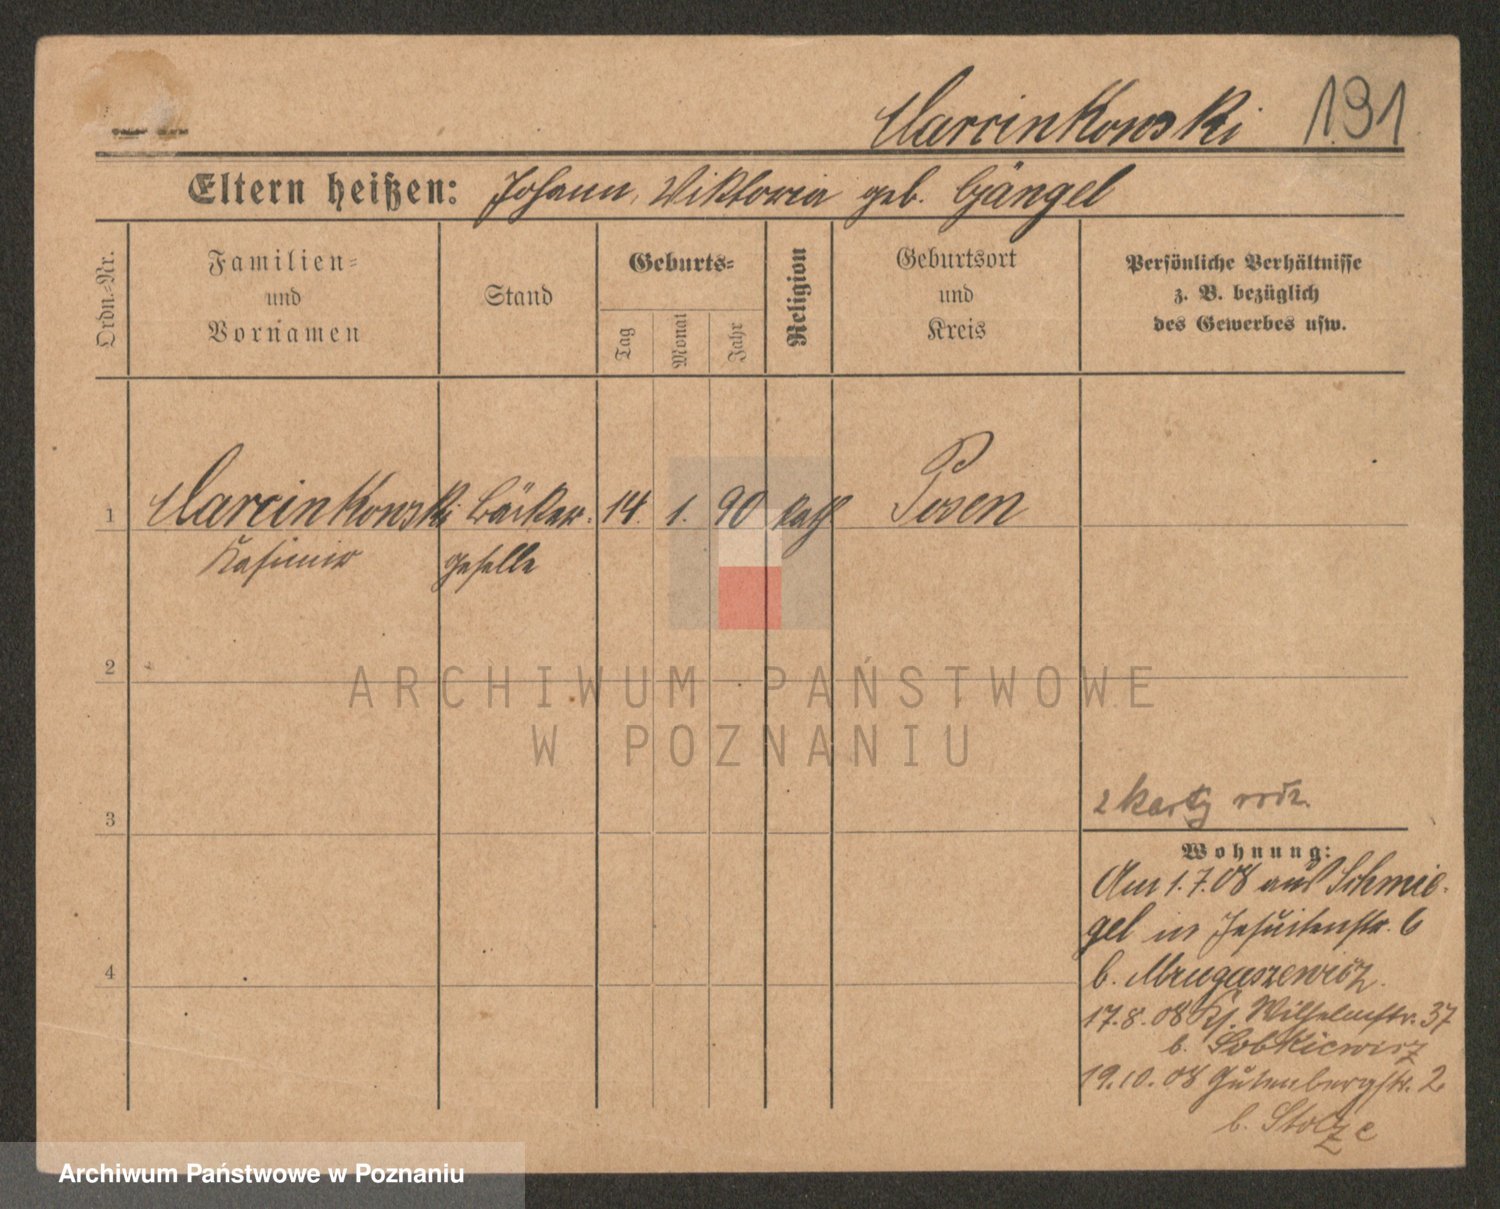 Marcinkowski 191
Eltern heißen: Johann, Viktoria geb. Gängel
Ordn.=Nr.
Familien=
und
Vornamen
Stand
Geburts=
Tag
Monat
Jahr
Religion
Geburtsort
und
Kreis
Persönliche Verhältnisse
z. B. bezüglich
des Gewerbes usw.
1 Marcinkowski Bäcker= 14. 1. 90 kath Posen
Kasimir geselle
2
ARCHIWUM PAŃSTWOWE
W POZNANIU
2 karty
3
Wohnung:
Am 1.7.08 aus Schmie=
gel in Jesuitenstr. 6
b. Mrugaszewicz.
17.8.08 Wilhelmstr. 37
b. Sobkiewicz
19.10.08 Gutenbergstr. 2
b. Stolze
4
Archiwum Państwowe w Poznaniu